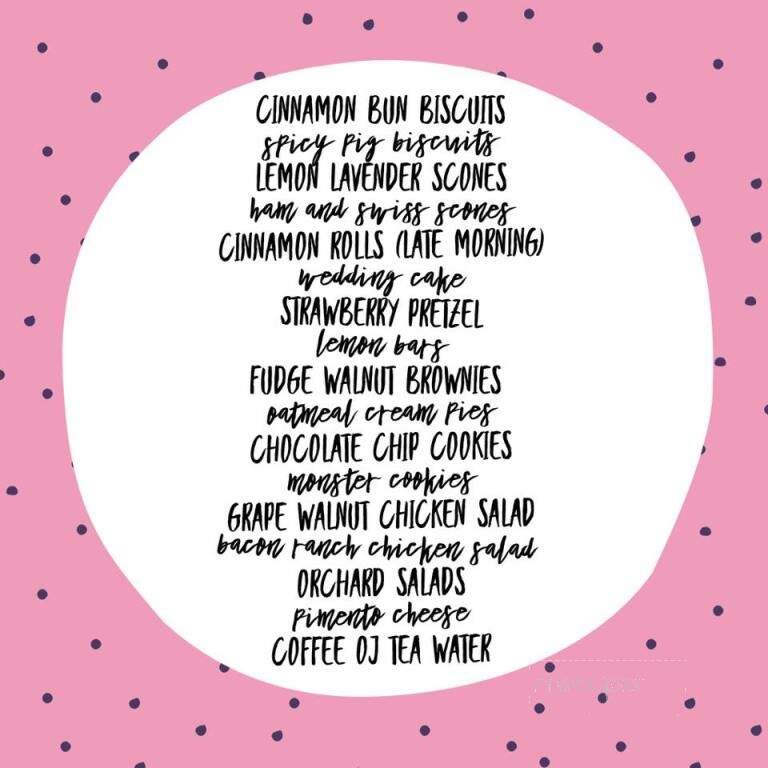 CINNAMON BUN BISCUITS
spicy pig biscuits
LEMON LAVENDER SCONES
ham and swiss scones
CINNAMON ROLLS (LATE MORNING)
wedding cake
STRAWBERRY PRETZEL
lemon bars
FUDGE WALNUT BROWNIES
oatmeal cream pies
CHOCOLATE CHIP COOKIES
monster cookies
GRAPE WALNUT CHICKEN SALAD
bacon ranch chicken salad
ORCHARD SALADS
pimento cheese
COFFEE OJ TEA WATER